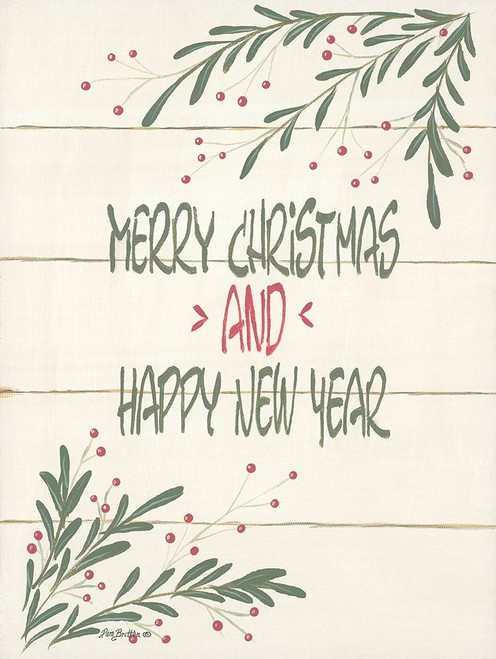 MERRY CHRiSTMAS
› AND ‹
HAPPY NEW YEAR
Pam Britton ©